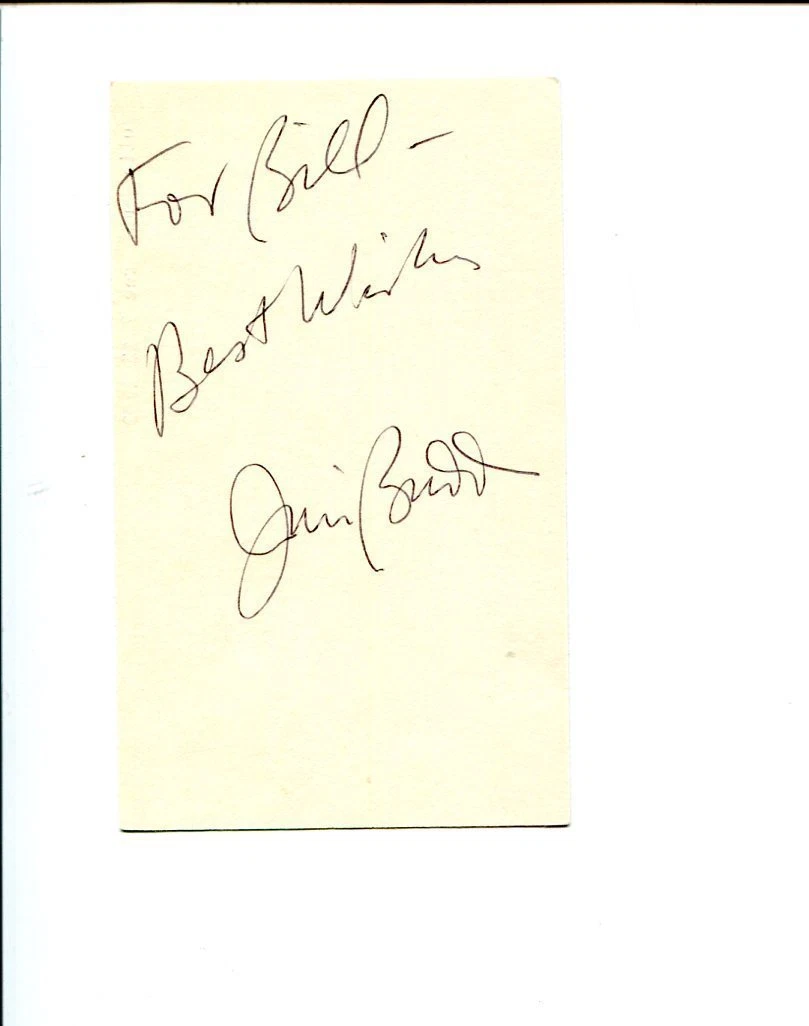 For Bill -
Best Wishes
Jim Budd